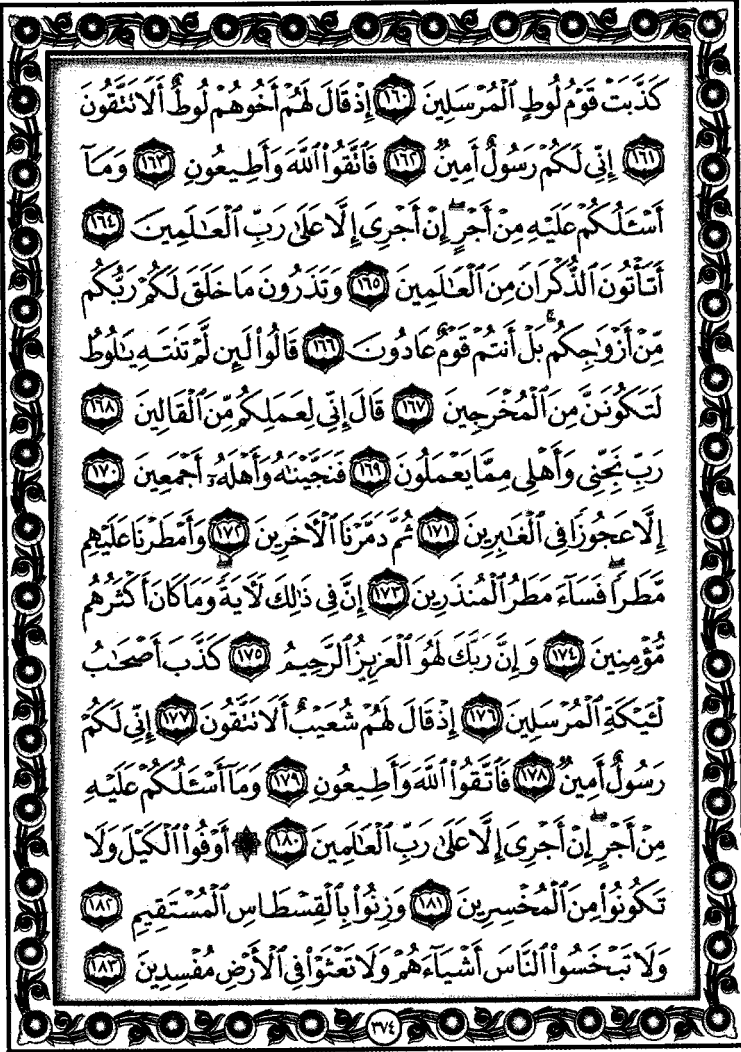 كَذَّبَتْ قَوْمُ لُوطٍ ٱلْمُرْسَلِينَ ١٦٠ إِذْ قَالَ لَهُمْ أَخُوهُمْ لُوطٌ أَلَا تَتَّقُونَ
١٦١ إِنِّى لَكُمْ رَسُولٌ أَمِينٌ ١٦٢ فَٱتَّقُوا۟ ٱللَّهَ وَأَطِيعُونِ ١٦٣ وَمَآ
أَسْـَٔلُكُمْ عَلَيْهِ مِنْ أَجْرٍ ۖ إِنْ أَجْرِىَ إِلَّا عَلَىٰ رَبِّ ٱلْعَـٰلَمِينَ ١٦٤
أَتَأْتُونَ ٱلذُّكْرَانَ مِنَ ٱلْعَـٰلَمِينَ ١٦٥ وَتَذَرُونَ مَا خَلَقَ لَكُمْ رَبُّكُم
مِّنْ أَزْوَٰجِكُم ۚ بَلْ أَنتُمْ قَوْمٌ عَادُونَ ١٦٦ قَالُوا۟ لَئِن لَّمْ تَنتَهِ يَـٰلُوطُ
لَتَكُونَنَّ مِنَ ٱلْمُخْرَجِينَ ١٦٧ قَالَ إِنِّى لِعَمَلِكُم مِّنَ ٱلْقَالِينَ ١٦٨
رَبِّ نَجِّنِى وَأَهْلِى مِمَّا يَعْمَلُونَ ١٦٩ فَنَجَّيْنَـٰهُ وَأَهْلَهُۥٓ أَجْمَعِينَ ١٧٠
إِلَّا عَجُوزًا فِى ٱلْغَـٰبِرِينَ ١٧١ ثُمَّ دَمَّرْنَا ٱلْـَٔاخَرِينَ ١٧٢ وَأَمْطَرْنَا عَلَيْهِم
مَّطَرًا ۖ فَسَآءَ مَطَرُ ٱلْمُنذَرِينَ ١٧٣ إِنَّ فِى ذَٰلِكَ لَـَٔايَةً ۖ وَمَا كَانَ أَكْثَرُهُم
مُّؤْمِنِينَ ١٧٤ وَإِنَّ رَبَّكَ لَهُوَ ٱلْعَزِيزُ ٱلرَّحِيمُ ١٧٥ كَذَّبَ أَصْحَـٰبُ
لْـَٔيْكَةِ ٱلْمُرْسَلِينَ ١٧٦ إِذْ قَالَ لَهُمْ شُعَيْبٌ أَلَا تَتَّقُونَ ١٧٧ إِنِّى لَكُمْ
رَسُولٌ أَمِينٌ ١٧٨ فَٱتَّقُوا۟ ٱللَّهَ وَأَطِيعُونِ ١٧٩ وَمَآ أَسْـَٔلُكُمْ عَلَيْهِ
مِنْ أَجْرٍ ۖ إِنْ أَجْرِىَ إِلَّا عَلَىٰ رَبِّ ٱلْعَـٰلَمِينَ ١٨٠ ۞ أَوْفُوا۟ ٱلْكَيْلَ وَلَا
تَكُونُوا۟ مِنَ ٱلْمُخْسِرِينَ ١٨١ وَزِنُوا۟ بِٱلْقِسْطَاسِ ٱلْمُسْتَقِيمِ ١٨٢
وَلَا تَبْخَسُوا۟ ٱلنَّاسَ أَشْيَآءَهُمْ وَلَا تَعْثَوْا۟ فِى ٱلْأَرْضِ مُفْسِدِينَ ١٨٣
٣٧٤